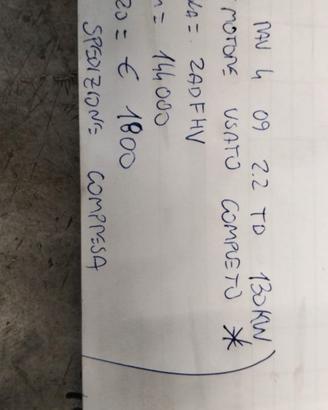 RAV 4 09 2.2 TD 130KW
MOTORE USATO COMPLETO *
= 2ADFHV
= 144000
= € 1800
SPEDIZIONE COMPRESA